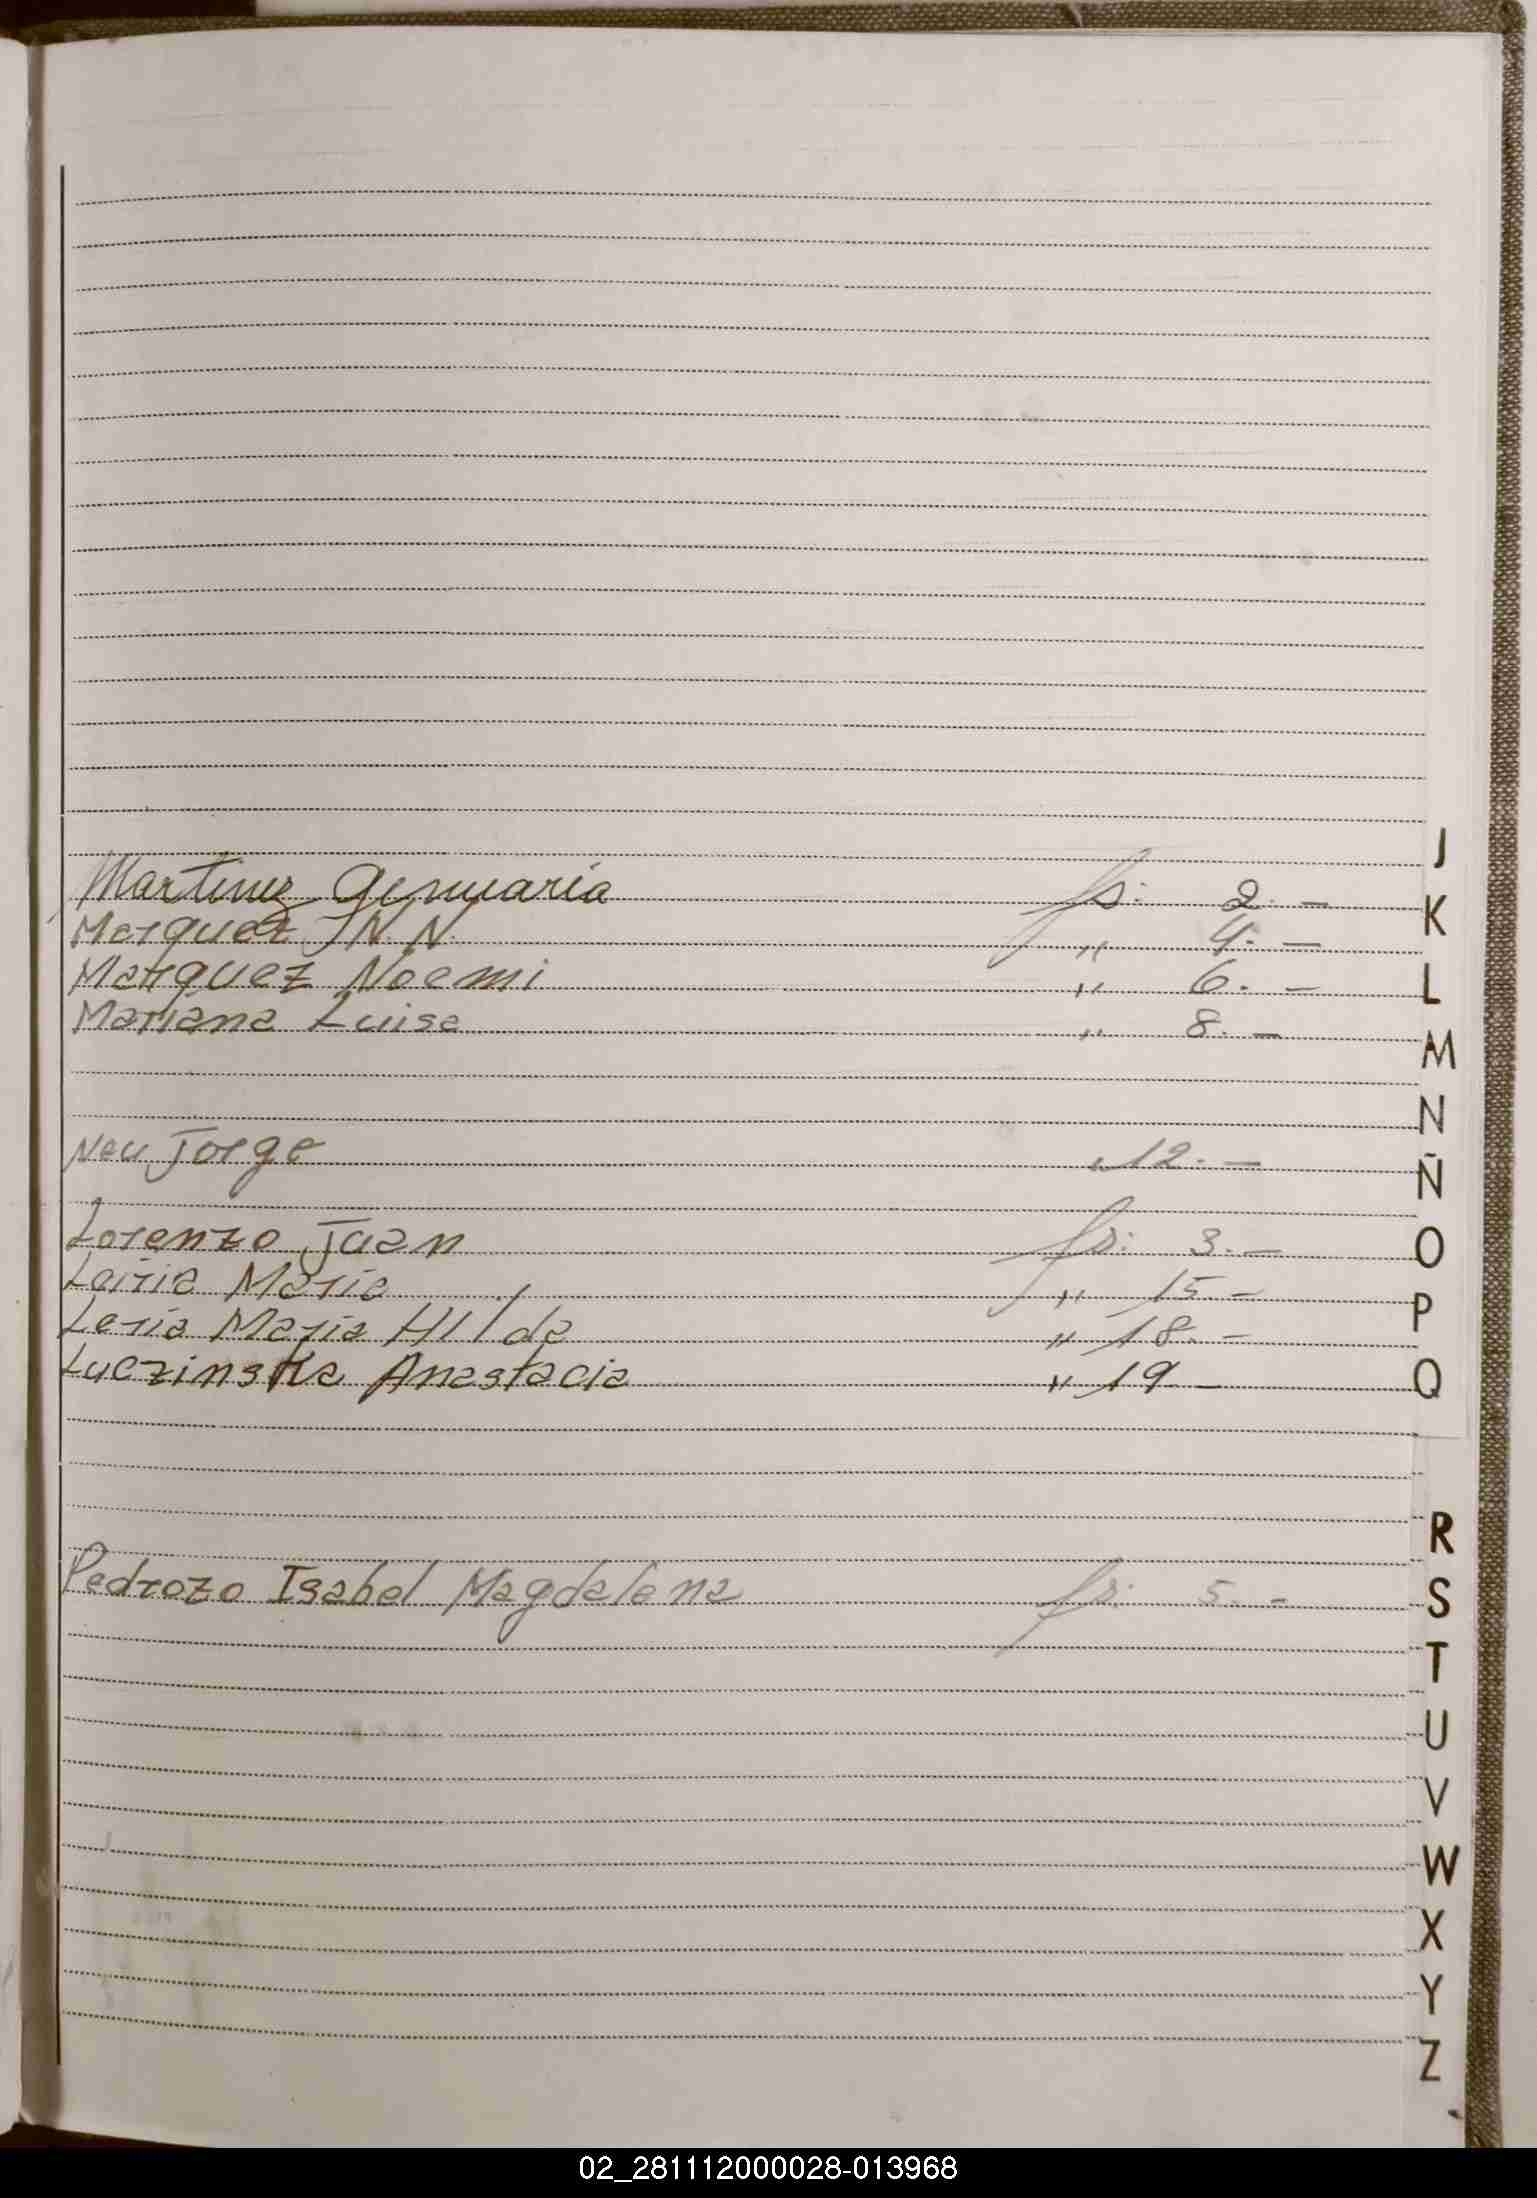 Martinez Genuaria fs: 2.-
Marquez N.N. " 4.-
Marquez Noemi " 6.-
Mariana Luisa " 8.-
Neu Jorge " 12.-
Lorenzo Juan fs: 3.-
Leiria Maria " 15-
Leria Maria Hilda " 18.-
Luczinska Anastacia " 19-
Pedrozo Isabel Magdalena fs: 5.-
J
K
L
M
N
Ñ
O
P
Q
R
S
T
U
V
W
X
Y
Z
02_281112000028-013968